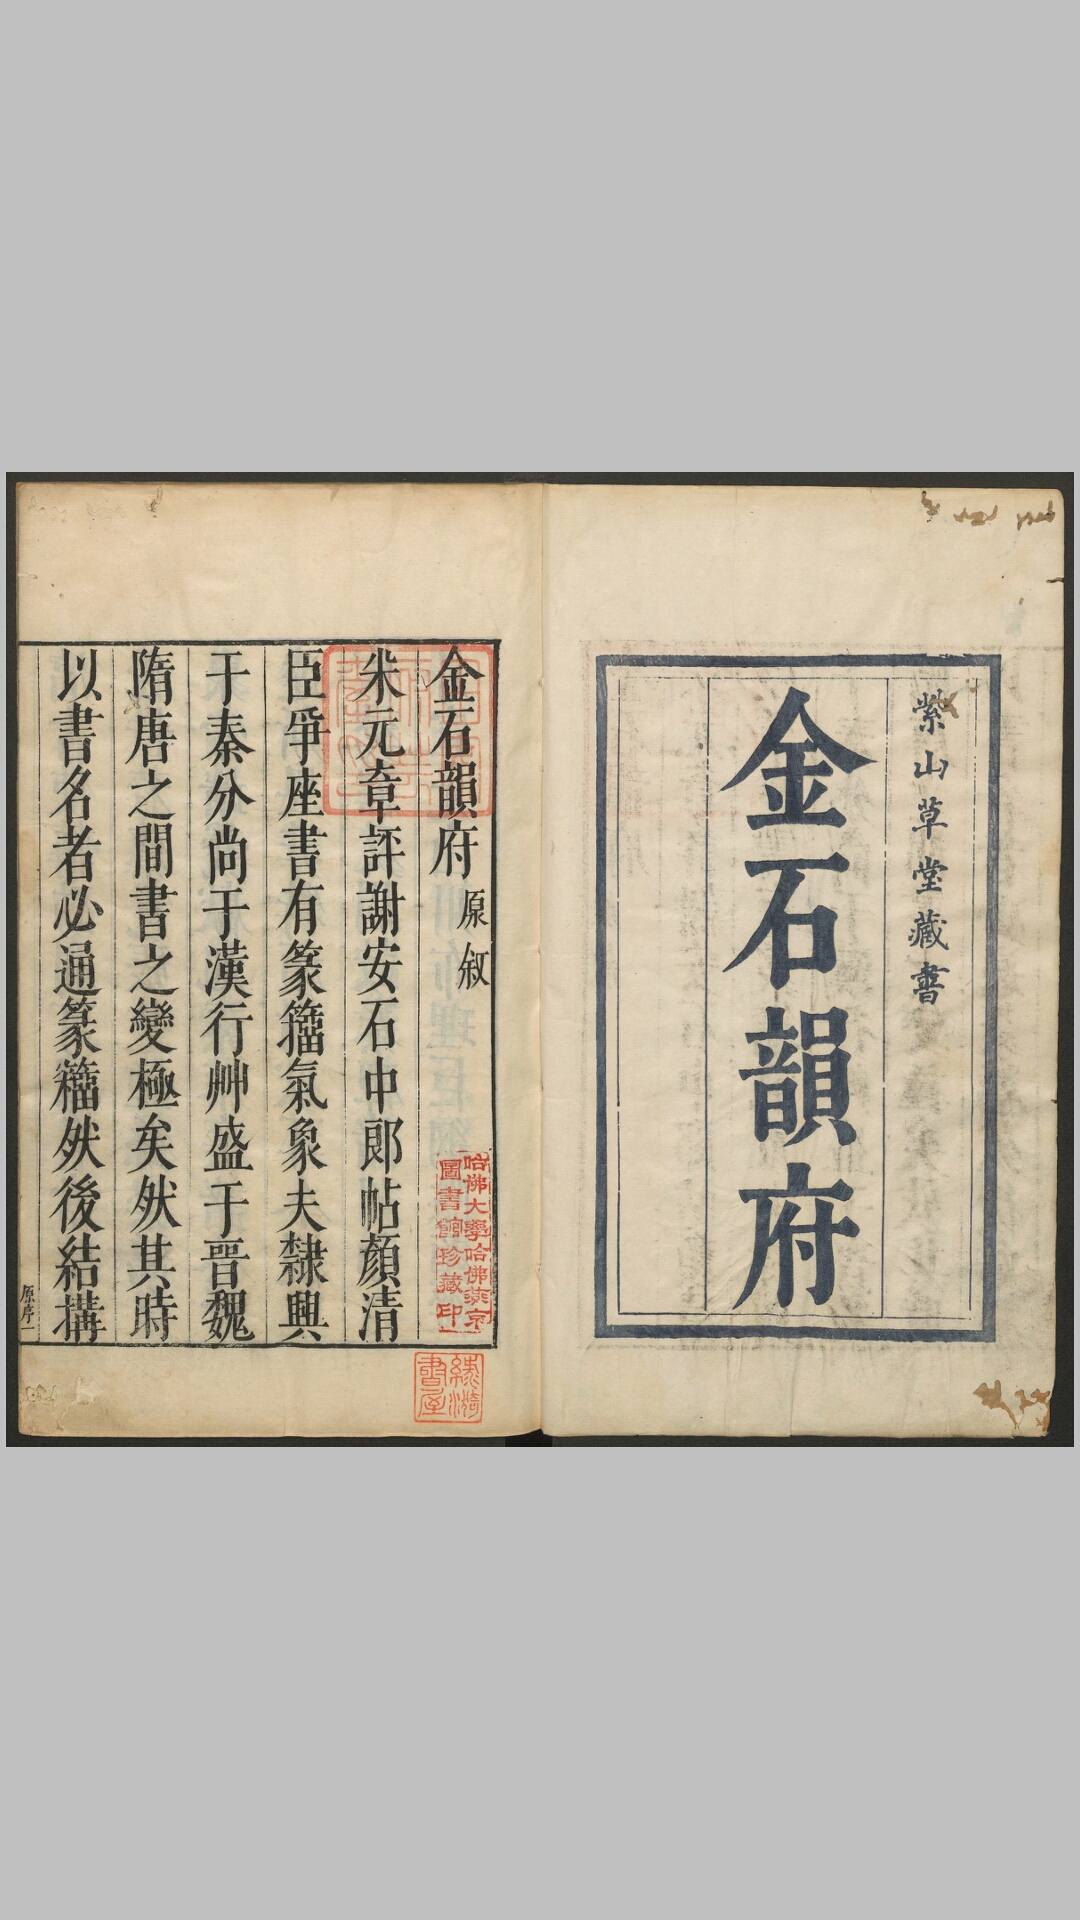 紫山草堂藏書
金石韻府
金石韻府原敘
米元章評謝安石中郎帖顏清
臣爭座書有篆籀氣象夫隸興
于秦分尚于漢行艸盛于晋魏
隋唐之間書之變極矣然其時
以書名者必通篆籀然後結構
原序一
哈佛大學哈佛燕京
圖書館珍藏印
綠漪
書屋